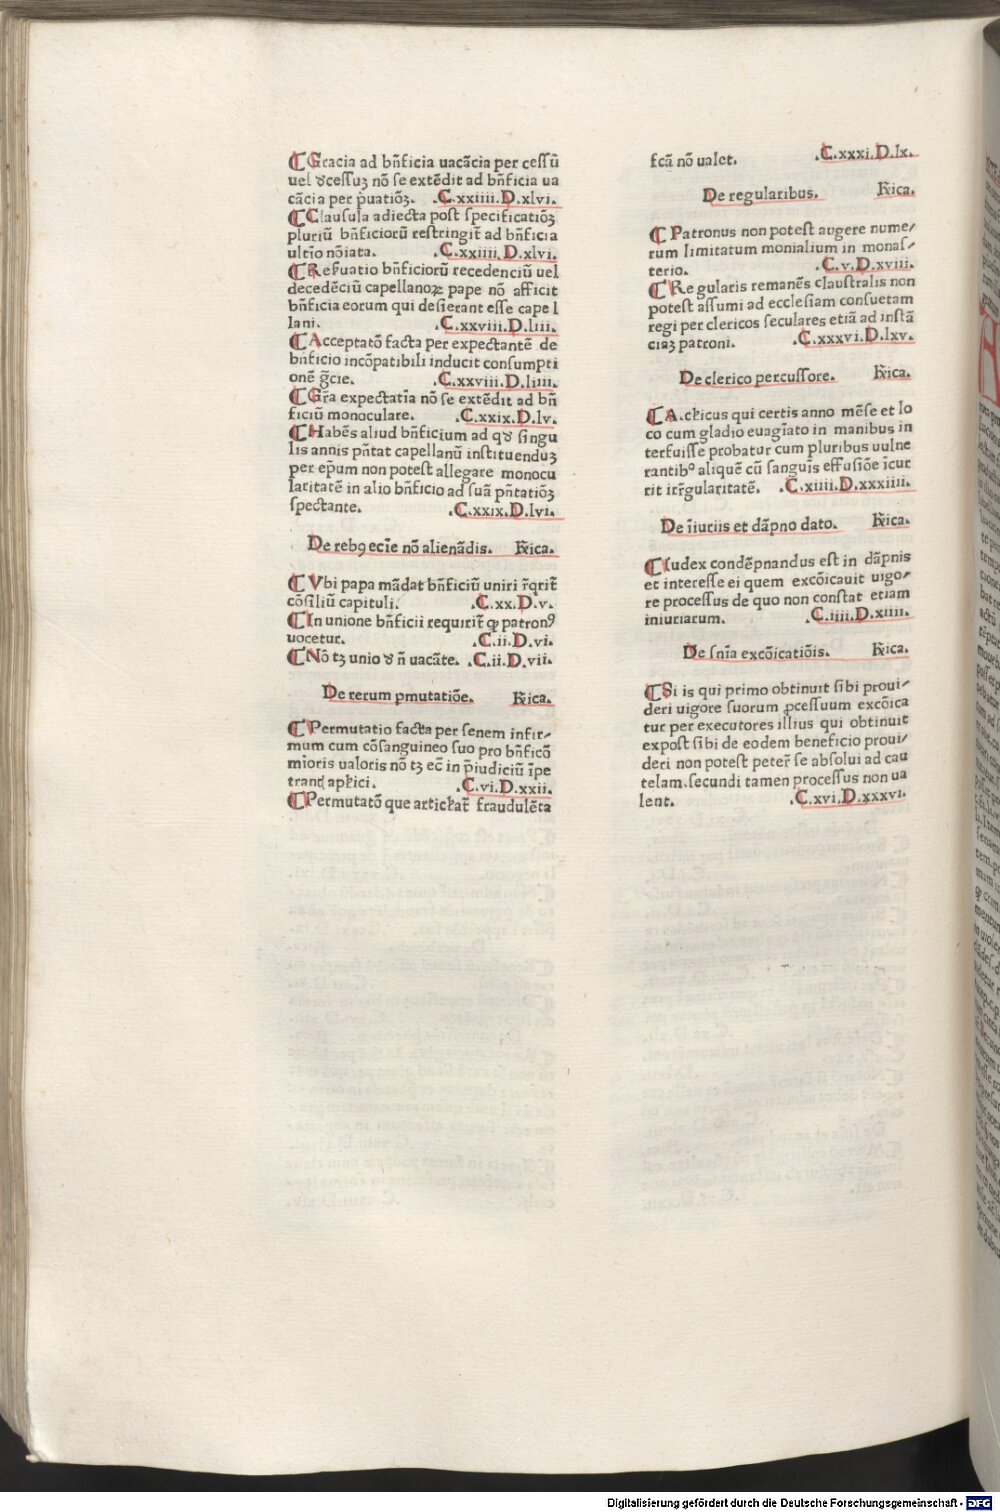 ¶ Gracia ad bn̄ficia uacãcia per cessũ
uel ꝺcessuꝫ nõ se extẽdit ad bn̄ficia ua
cãcia per p̄uatiõꝫ. .C.xxiiii.D.xlvi.
¶ Clausula adiecta post specificatiõꝫ
pluriũ bn̄ficiorũ restringit̃ ad bn̄ficia
ultĩo nõiata. .C.xxiiii.D.xlvi.
¶ Reſuatio bn̄ficiorũ recedenciũ uel
decedẽciũ capellanoꝝ pape nõ afficit
bn̄ficia eorum qui desierant esse capel
lani. .C.xxviii.D.liii.
¶ Acceptatõ facta per expectantẽ de
bn̄ficio incõpatibili inducit consumpti
onẽ gr̃cie. .C.xxviii.D.liiii.
¶ Gr̃a expectatĩa nõ se extẽdit ad bn̄
ficiũ monoculare. .C.xxix.D.lv.
¶ Habẽs aliud bn̄ficium ad qꝺ singu
lis annis pn̄tat capellanũ instituenduꝫ
per ep̃um non potest allegare monocu
laritatẽ in alio bn̄ficio ad suã pn̄tatiõꝫ
spectante. .C.xxix.D.lvi.
De rebꝰ eccĩe nõ alienãdis. Rica.
¶ Vbi papa mãdat bn̄ficiũ uniri r̃qrit̃
cõsiliũ capituli. .C.xx.D.v.
¶ In unione bn̄ficii requirit̃ ꝙ patronꝰ
uocetur. .C.ii.D.vi.
¶ Nõ tꝫ unio ꝺ n̄ uacãte. .C.ii.D.vii.
De rerum pmutatiõe. Rica.
¶ Permutatio facta per senem infir⸗
mum cum cõsanguineo suo pro bn̄ficõ
mioris ualoris nõ tꝫ ec̃ in p̄iudiciũ ĩpe
trant̃ apl̃ici. .C.vi.D.xxii.
¶ Permutatõ que articl̃at̃ fraudulẽta
fcã nõ ualet. .C.xxxi.D.lx.
De regularibus. Rica.
¶ Patronus non potest augere nume⸗
rum limitatum monialium in monas⸗
terio. .C.v.D.xviii.
¶ Regularis remanẽs claustralis non
potest assumi ad ecclesiam consuetam
regi per clericos seculares etiã ad instã
ciaꝫ patroni. .C.xxxvi.D.lxv.
De clerico percussore. Rica.
¶ A.cl̃icus qui certis anno mẽse et lo
co cum gladio euagĩato in manibus in
terfuisse probatur cum pluribus uulne
rantibꝰ aliquẽ cũ sanguĩs effusiõe ĩcur
rit irr̃gularitatẽ. .C.xiiii.D.xxxiiii.
De ĩiuriis et dãpno dato. Rica.
¶ Iudex condẽpnandus est in dãpnis
et interesse ei quem excõicauit uigo⸗
re processus de quo non constat etiam
iniuriarum. .C.iiii.D.xiiii.
De sñia excõicatiõis. Rica.
¶ Si is qui primo obtinuit sibi proui⸗
deri uigore suorum ꝓcessuum excõica
tur per executores illius qui obtinuit
expost sibi de eodem beneficio proui⸗
deri non potest peter̃ se absolui ad cau
telam.secundi tamen processus non ua
lent. .C.xvi.D.xxxvi.
Digitalisierung gefördert durch die Deutsche Forschungsgemeinschaft - DFG